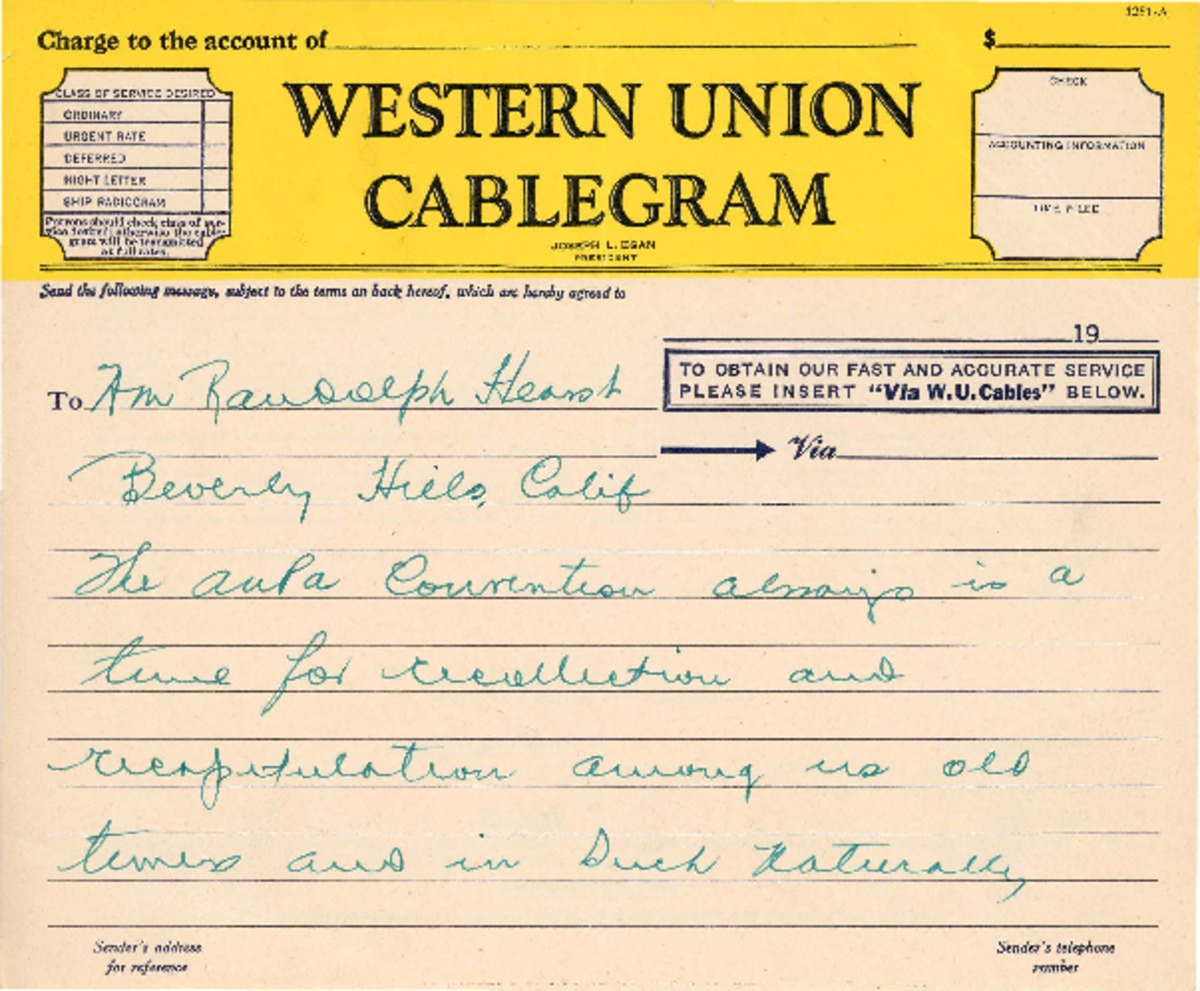 1251-A
Charge to the account of $
CLASS OF SERVICE DESIRED
ORDINARY
URGENT RATE
DEFERRED
NIGHT LETTER
SHIP RADIOGRAM
Patrons should check class of service desired; otherwise the cablegram will be transmitted at full rates.
WESTERN UNION
CABLEGRAM
JOSEPH L. EGAN
PRESIDENT
CHECK
ACCOUNTING INFORMATION
TIME FILED
Send the following message, subject to the terms on back hereof, which are hereby agreed to
19
TO OBTAIN OUR FAST AND ACCURATE SERVICE
PLEASE INSERT "Via W.U.Cables" BELOW.
Via
To Wm Randolph Hearst
Beverly Hills, Calif
The anPa Convention always is a
time for recollection and
recapitulation among us old
timers and in such Naturally
Sender's address
for reference
Sender's telephone
number